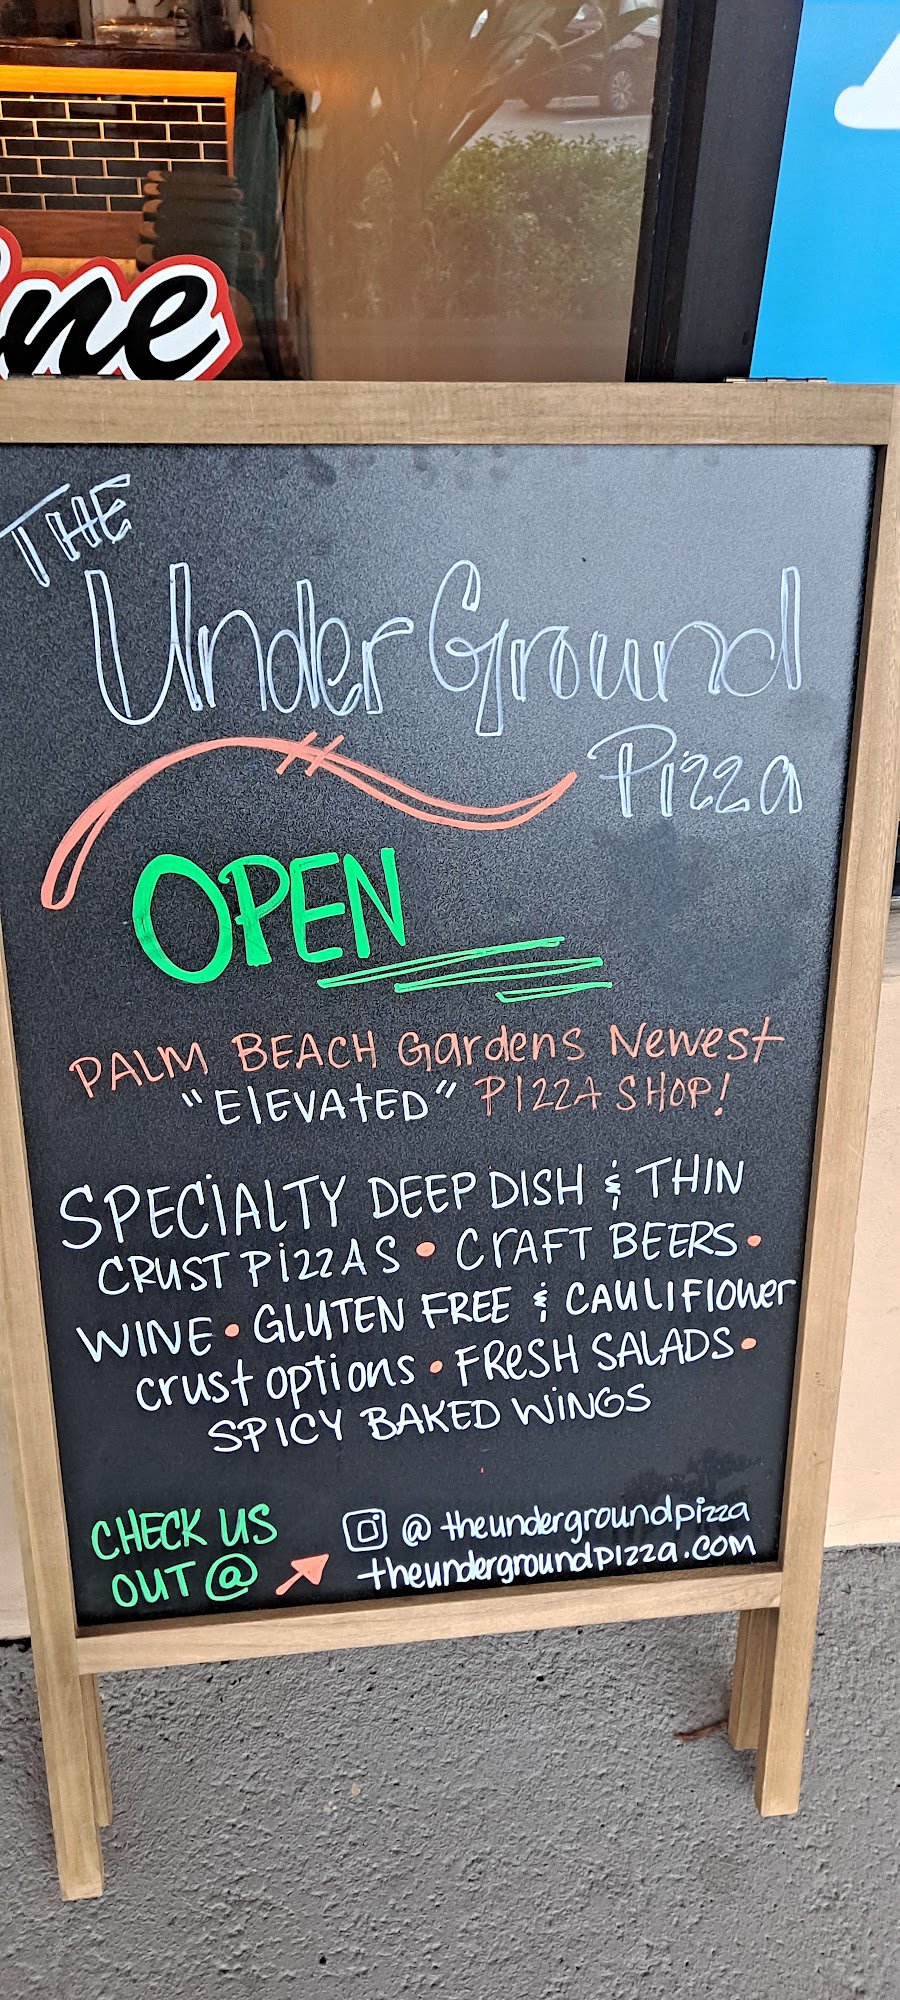 THE
UnderGround
Pizza
OPEN
PALM BEACH Gardens Newest
"ElEVAtED" PIZZA SHOP!
SPECiALTY DEEP DISH & THIN
CRUST PiZZAS • CrAFT BEERS •
WINE • GLUTEN FREE & CAULiFlower
crust options • FReSH SALADS •
SPICY BAKED WiNGS
CHECK US
OUT @
@ theundergroundpizza
theundergroundpizza.com